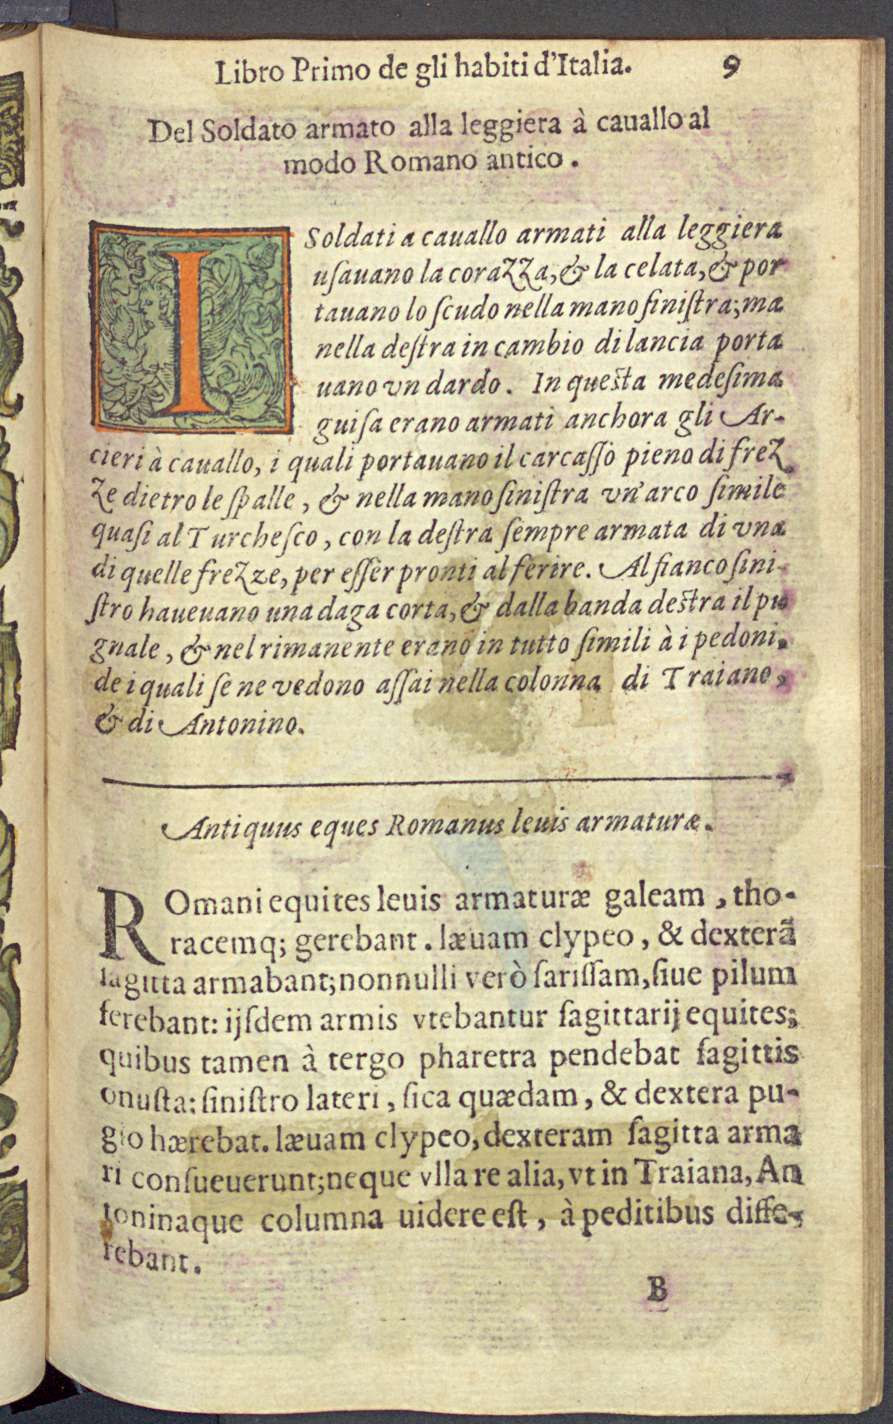 Libro Primo de gli habiti d'Italia. 9
Del Soldato armato alla leggiera à cauallo al
modo Romano antico.
I Soldati a cauallo armati alla leggiera
usauano la corazza, & la celata, & por
tauano lo scudo nella mano sinistra; ma
nella destra in cambio di lancia porta
uano vn dardo. In questa medesima
guisa erano armati anchora gli Ar-
cieri à cauallo, i quali portauano il carcasso pieno di frez
ze dietro le spalle, & nella mano sinistra vn'arco simile
quasi al Turchesco, con la destra sempre armata di vna
di quelle frezze, per esser pronti al ferire. Al fianco sini-
stro haueuano una daga corta, & dalla banda destra il pu
gnale, & nel rimanente erano in tutto simili à i pedoni,
de i quali se ne vedono assai nella colonna di Traiano,
& di Antonino.
Antiquus eques Romanus leuis armaturæ.
ROmani equites leuis armaturæ galeam, tho-
racemq; gerebant. læuam clypeo, & dexterã
sagitta armabant; nonnulli verò sarissam, siue pilum
ferebant: ijsdem armis vtebantur sagittarij equites;
quibus tamen à tergo pharetra pendebat sagittis
onusta: sinistro lateri, sica quædam, & dextera pu-
gio hærebat. læuam clypeo, dexteram sagitta arma
ri consueuerunt; neque vlla re alia, vt in Traiana, An
toninaque columna uidere est, à peditibus diffe-
rebant.
B